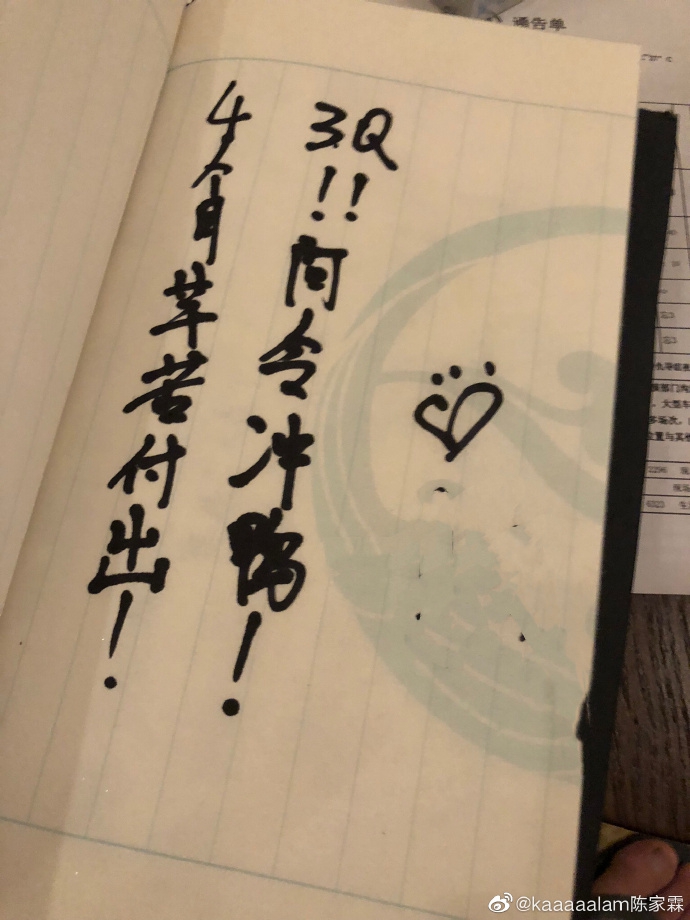 3Q!!阿令冲鸭!
4个月莘苦付出!
通告单
@kaaaaaalam陈家霖